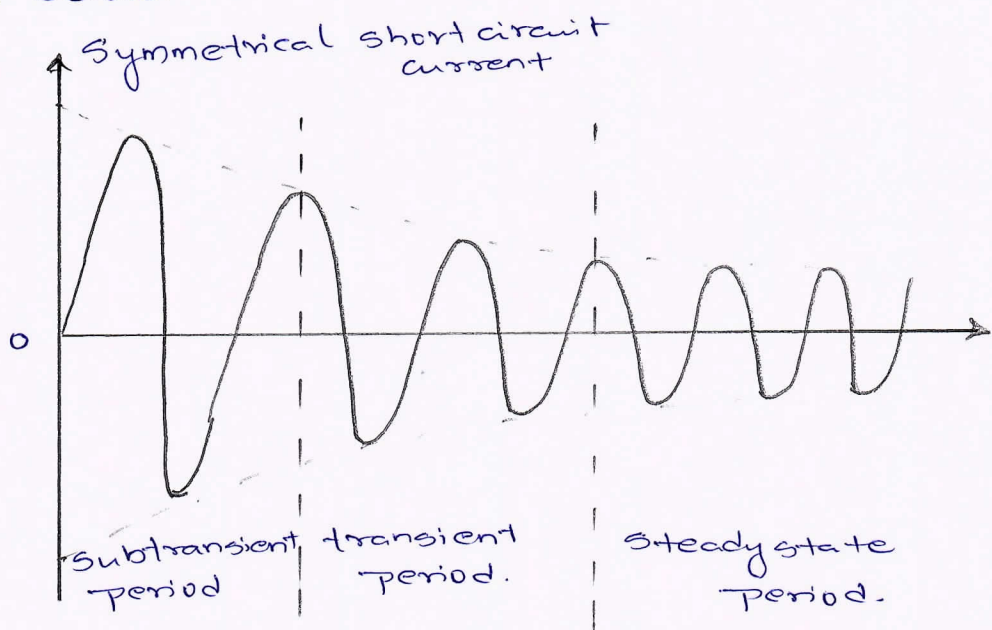 Symmetrical short circuit
current
0
Subtransient
period
transient
period.
Steady state
period.